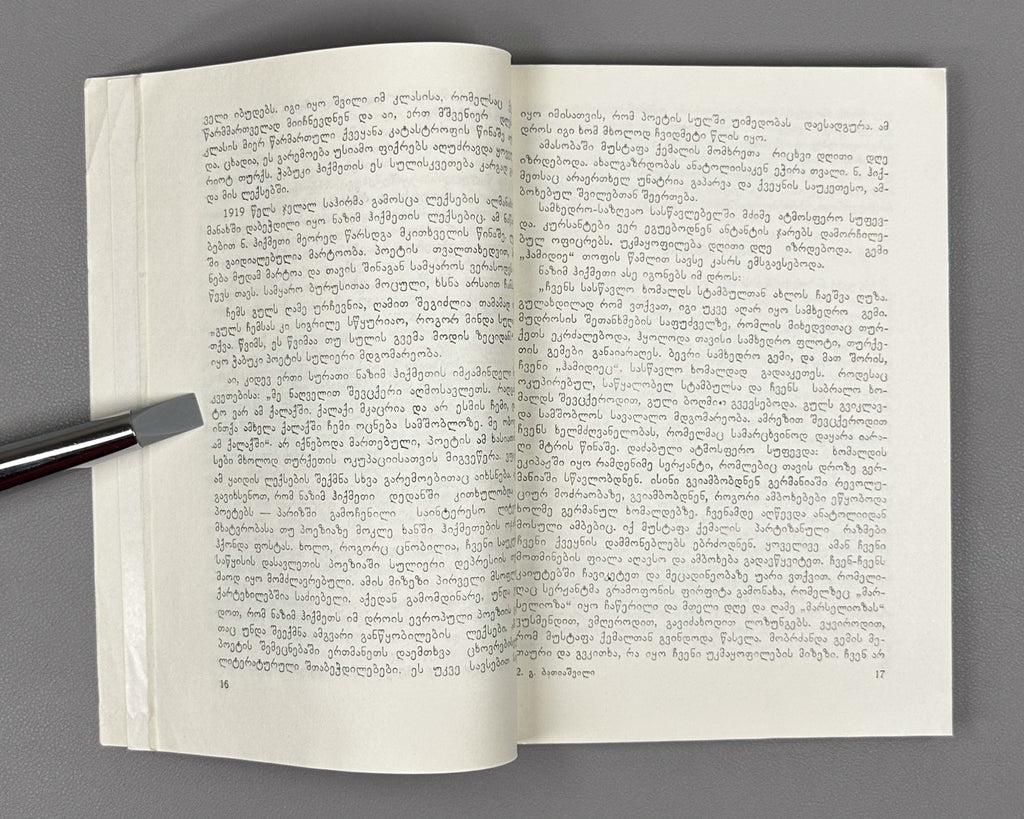 ველი იბუდებს. იგი იყო შვილი იმ კლასისა, რომელსაც
წარმმართველად მიიჩნევდნენ და აი, ერთ მშვენიერ დღეს
კლასის მიერ წარმართული ქვეყანა კატასტროფის წინაშე
და. ცხადია, ეს გარემოება უსიამო ფიქრებს აღუძრავდა
რიოტ თურქს. ჭაბუკი ჰიქმეთის ეს სულისკვეთება კარგად
და მის ლექსებში.
1919 წელს ჯელალ საჰირმა გამოსცა ლექსების
მანახში დაბეჭდილი იყო ნაზიმ ჰიქმეთის ლექსებიც. ამ
ბებით ნ. ჰიქმეთი მეორედ წარსდგა მკითხველის წინაშე.
ში გაიდიალებულია მარტოობა. პოეტის თვალთახედვით,
ნება მუდამ მარტოა და თავის შინაგან სამყაროს
წევს თავს. სამყარო ბურუსითაა მოცული, ხსნა არსაით
ჩემს გულს ღამე ურჩევნია, ღამით შეგიძლია თამამად
„გულს ჩემსას კი სიგრილე სწყურიაო, როგორ მინდა
თქვა. წვიმს, ეს წვიმაა თუ სულის გვემა მოდის ზეციდან“
იყო ჭაბუკი პოეტის სულიერი მდგომარეობა.
აი, კიდევ ერთი სურათი ნაზიმ ჰიქმეთის იმჟამინდელი
კვეთებისა: „მე ნაღველით შევცქერი აღმოსავლეთს.
ტო ვარ ამ ქალაქში. ქალაქი მკაცრია და არ ესმის ჩემი,
ინთქა ამხელა ქალაქში ჩემი ოცნება სამშობლოზე. მე
ამ ქალაქში“. არ იქნებოდა მართებული, პოეტის ამ
სები მხოლოდ თურქეთის ოკუპაციისათვის მიგვეწერა.
ამ ყაიდის ლექსების შექმნა სხვა გარემოებითაც აიხსნება.
გავიხსენოთ, რომ ნაზიმ ჰიქმეთი დედანში კითხულობდა
პოეტებს — პარიზში გამოჩენილი საინტერესო
მხატვრობასა თუ პოეზიაზე მოკლე ხანში ჰიქმეთების
ჰქონდა ფოსტას. ხოლო, როგორც ცნობილია, ჩვენი
საწყისის დასავლეთის პოეზიაში სულიერი დეპრესიის
მათდ იყო მომძლავრებული. ამის მიზეზი პირველი
ქარტეხილებშია საძიებელი. აქედან გამომდინარე, უნდა
დოთ, რომ ნაზიმ ჰიქმეთს იმ დროის ევროპული პოეზიის
თაც უნდა შეექმნა ამგვარი განწყობილების ლექსები.
პოეტის შემეცნებაში ერთმანეთს დაემთხვა
ლიტერატურული შთაბეჭდილებები. ეს უკვე სავსებით
16
იყო იმისათვის, რომ პოეტის სულში უიმედობას დაესადგურა. ამ
დროს იგი ხომ მხოლოდ ჩვიდმეტი წლის იყო.
ამასობაში მუსტაფა ქემალის მომხრეთა რიცხვი დღითი დღე
იზრდებოდა. ახალგაზრდობას ანატოლიისაკენ ეჭირა თვალი. ნ. ჰიქ-
მეთსაც არაერთხელ უნატრია გაპარვა და ქვეყნის საუკეთესო, ამ-
ბოხებულ შვილებთან შეერთება.
სამხედრო-საზღვაო სასწავლებელში მძიმე ატმოსფერო სუფევ-
და. კურსანტები ვერ ეგუებოდნენ ანტანტის ჯარებს დამორჩილე-
ბულ ოფიცრებს. უკმაყოფილება დღითი დღე იზრდებოდა. გემი
„ჰამიდიე“ თოფის წამლით სავსე კასრს ემსგავსებოდა.
ნაზიმ ჰიქმეთი ასე იგონებს იმ დროს:
„ჩვენს სასწავლო ხომალდს სტამბულთან ახლოს ჩაეშვა ღუზა.
გულახდილად რომ ვთქვათ, იგი უკვე აღარ იყო სამხედრო გემი.
მუდროსის შეთანხმების საფუძველზე, რომლის მიხედვითაც თურ-
ქეთს ეკრძალებოდა, ჰყოლოდა თავისი სამხედრო ფლოტი, თურქე-
თის გემები განაიარაღეს. ბევრი სამხედრო გემი, და მათ შორის,
ჩვენი „ჰამიდიეც“. სასწავლო ხომალდად გადააკეთეს. როდესაც
ოკუპირებულ, საწყალობელ სტამბულსა და ჩვენს საბრალო ხო-
მალდს შევცქეროდით, გული ბოღმით გვევსებოდა. გულს გვიკლავ-
და სამშობლოს სავალალო მდგომარეობა. ამრეზით შევცქეროდით
ჩვენს ხელმძღვანელობას, რომელმაც სამარცხვინოდ დაყარა იარა-
ღი მტრის წინაშე. დაძაბული ატმოსფერო სუფევდა: ხომალდის
ეკიპაჟში იყო რამდენიმე სერჟანტი, რომლებიც თავის დროზე გერ-
მანიაში სწავლობდნენ. ისინი გვიამბობდნენ გერმანიაში რევოლუ-
ციურ მოძრაობაზე, გვიამბობდნენ, როგორი ამბოხებები ეწყობოდა
ხოლმე გერმანულ ხომალდებზე. ჩვენამდე აღწევდა ანატოლიიდან
მოსული ამბებიც. იქ მუსტაფა ქემალის პარტიზანული რაზმები
ჩვენი ქვეყნის დამმონებლებს ებრძოდნენ. ყოველივე ამან ჩვენი
მოთმინების ფიალა აღავსო და ამბოხება გადავწყვიტეთ. ჩვენ-ჩვენს
კაიუტებში ჩავიკეტეთ და მეცადინეობაზე უარი ვთქვით. რომელი-
ღაც სერჟანტმა გრამოფონის ფირფიტა გამონახა, რომელზეც „მარ-
სელიოზა“ იყო ჩაწერილი და მთელი დღე და ღამე „მარსელიოზას“
ვუსმენდით, ვმღეროდით, გავიძახოდით ლოზუნგებს. ვყვიროდით,
რომ მუსტაფა ქემალთან გვინდოდა წასვლა. მობრძანდა გემის მე-
თაური და გვკითხა, რა იყო ჩვენი უკმაყოფილების მიზეზი. ჩვენ არ
2. გ. ბათიაშვილი
17